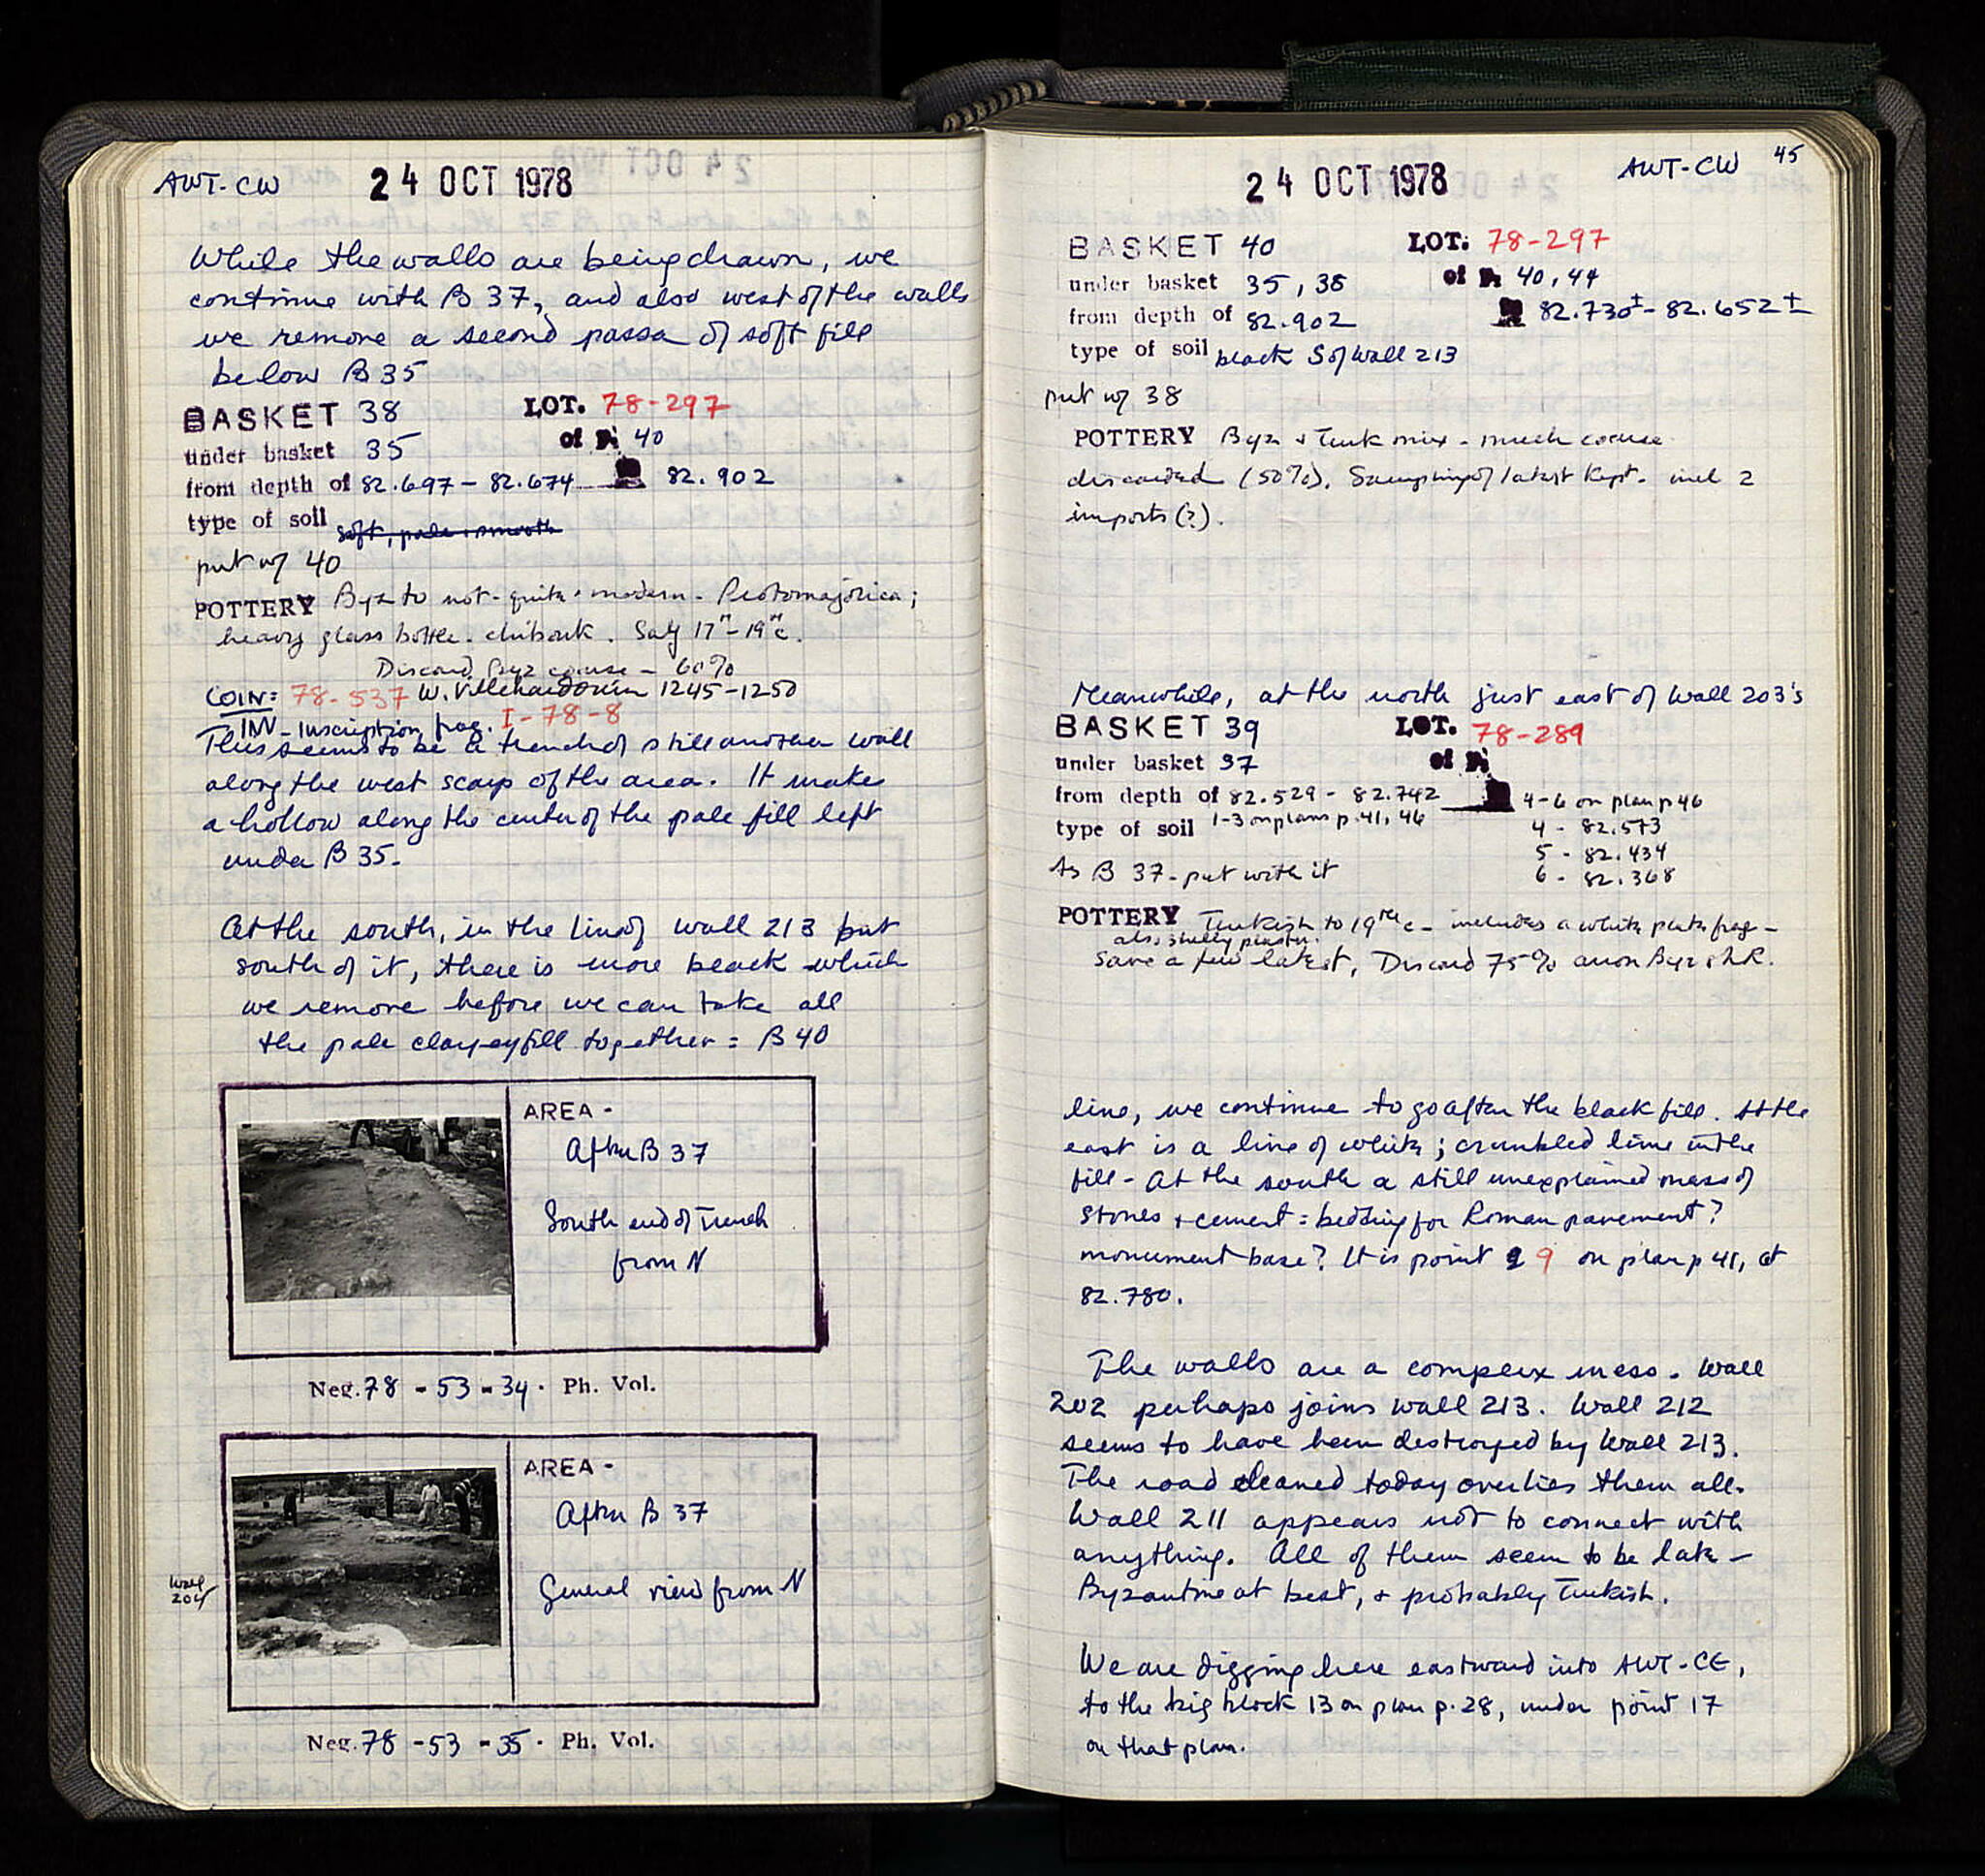 AWT-CW 24 OCT 1978
While the walls are being drawn, we
continue with B 37, and also west of the walls
we remove a second passa of soft fill
below B 35
BASKET 38 LOT. 78-297
under basket 35 of P. 40
from depth of 82.697 - 82.674 82.902
type of soil soft, pale & smooth
put w/ 40
POTTERY Byz to not-quite-modern - Protomajolica;
heavy glass bottle. chibouk. Say 17th-19th c.
Discard Byz coarse - 60%
COIN: 78-537 W. Villehardouin 1245-1250
INV - Inscription frag. I-78-8
This seems to be a trench of still another wall
along the west scarp of the area. It makes
a hollow along the center of the pale fill left
under B 35.
At the south, in the line of wall 213 but
south of it, there is more black which
we remove before we can take all
the pale clayey fill together = B 40
AREA -
After B 37
South end of Trench
from N
Neg. 78 - 53 - 34 . Ph. Vol.
AREA -
After B 37
General view from N
Wall
204
Neg. 78 - 53 - 35 . Ph. Vol.
24 OCT 1978 AWT-CW 45
BASKET 40 LOT: 78-297
under basket 35, 38 of P. 40, 44
from depth of 82.902 82.730± - 82.652±
type of soil black S of Wall 213
put w/ 38
POTTERY Byz & Turk mix - much coarse
discarded (50%). Sampling of latest kept. incl 2
imports (?).
Meanwhile, at the north just east of Wall 203's
BASKET 39 LOT. 78-289
under basket 37 of P.
from depth of 82.529 - 82.742 4-6 on plan p 46
type of soil 1-3 on plans p. 41, 46 4 - 82.573
5 - 82.434
As B 37 - put with it 6 - 82.368
POTTERY Turkish to 19th c - includes a white plate frag -
also shelly plaster.
save a few latest, Discard 75% anon Byz & LR.
line, we continue to go after the black fill. At the
east is a line of white; crumbled lime in the
fill - At the south a still unexplained mass of
stones & cement = bedding for Roman pavement?
monument base? It is point 9 on plan p 41, at
82.780.
The walls are a complex mess. Wall
202 perhaps joins wall 213. Wall 212
seems to have been destroyed by Wall 213.
The road cleaned today overlies them all.
Wall 211 appears not to connect with
anything. All of them seem to be late -
Byzantine at best, & probably Turkish.
We are digging here eastward into AWT-CE,
to the big block 13 on plan p. 28, under point 17
on that plan.